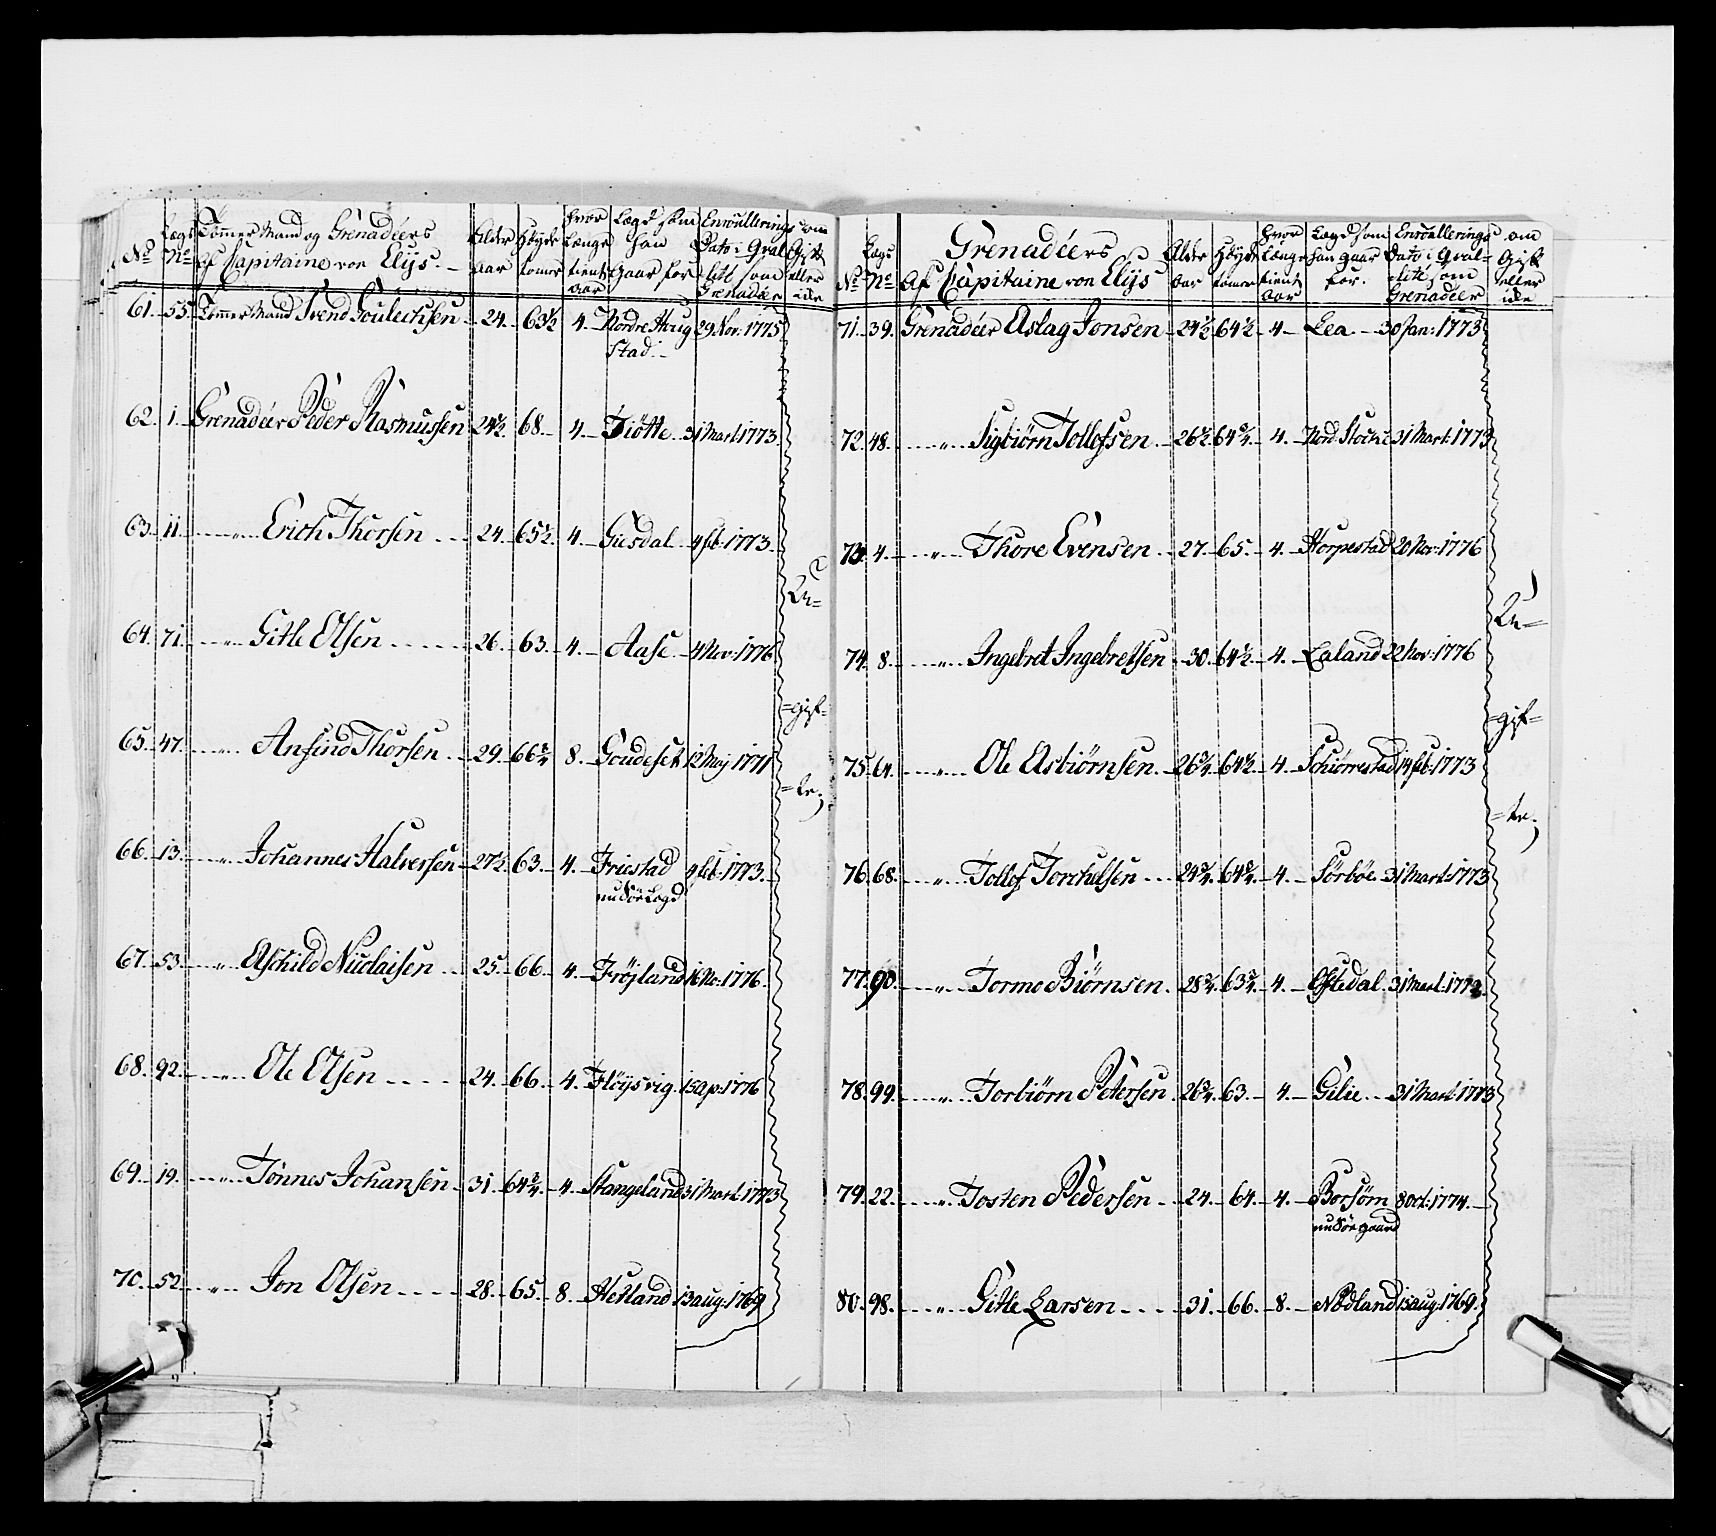 No | Lægs No | Tømmer Mand og Grenadéers af Capitaine von Elijs. | Alder Aar | Høyde tomer | hvor længe tient aar | Lægd som han gaar for | Enroullerings Dato i Qvalitté som Grenadéer | om Gift eller ide
61. 55. Tømmer Mand Svend Poulechsen 24. 63½ 4. Nordre Haug 29 Nov. 1775
Stad.
62. 1. Grenadéer Peder Rasmussen 24½ 68. 4. Tiötte 31 Mart. 1773
63. 11. " Erich Thorsen 24. 65½ 4. Giesdal 4 feb. 1773.
64. 71. " Gitle Olsen 26. 63. 4. Aase 4 Nov. 1776
65. 47. " Ansind Thorsen 29. 66¾ 8. Goudeset 12 Maj 1771
66. 13. " Johannes Halversen 27½ 63. 4. Friestad 9 feb. 1773.
nu Sör Lagd
67. 53. " Aschild Nicolaisen 25. 66. 4. Fröjland 16 No. 1776.
68. 92. " Ole Olsen 24. 66. 4. Flöysvig 15 ap. 1776
69. 19. " Tönnes Johansen 31. 64¾ 4. Stangeland 31 Mart. 1773
70. 52. " Jon Olsen 28. 65. 8. Hetland 13 aug. 1769
U=
=gif=
=te.
No | Lags No | Grenadéers af Capitaine von Elijs | Alder Aar | Høyde tomer | hvor længe tient Aar | Lægd som han gaar for. | Enroullerings Dato i Qvalitté som Grenadéer | om Gift eller ide
71. 39. Grenadéer Aslag Jonsen 24½ 64½ 4. Lea 30 Jan: 1773
72. 48. " Sigbiörn Tollefsen 26½ 64¾ 4. Nord Stocke 31 Mart. 1773
73. 4. " Thore Evensen 27. 65. 4. Horpestad 20 Nov. 1776
74. 8. " Ingebret Ingebretsen 30. 64½ 4. Laland 22 Nov. 1776
75. 61. " Ole Asbiörnsen 26¾ 64½ 4. Schiörrestad 14 feb. 1773
76. 68. " Tollef Torchelsen 24¾ 64¾ 4. Sörböe 31 Mart. 1773
77. 90. " Tormo Biörnsen 28¾ 63¾ 4. Ofstedal 31 Mart. 1773.
78. 99. " Torbiörn Petersen 26¾ 63. 4. Gilie 31 Mart. 1773
79. 22. " Tosten Pedersen 24. 64. 4. Borsörn 8 Oct. 1774.
nu Sör gaard
80. 98. " Gitle Larsen 31. 66. 8. Nödland 13 aug. 1769
U=
=gif=
=te.